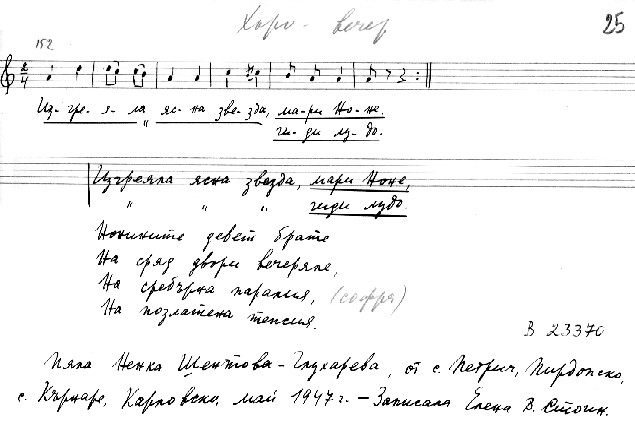 Хоро - вечер
25
152
2/4
Из- гре- я- ла яс- на зве- зда, ма-ри Но- не.
" ги- ди лу- до.
Изгреяла ясна звезда, мари Ноне,
" " " гиди лудо.
Нонините девет братя
На сряд двори вечеряле,
На сребърна паралия, (софря)
На позлатена тепсия.
В 23370
Пяла Ненка Шентова-Глухарева, от с. Петрич, Пирдопско,
с. Кърнаре, Карловско, май 1947 г. - Записала Елена В. Стоин.